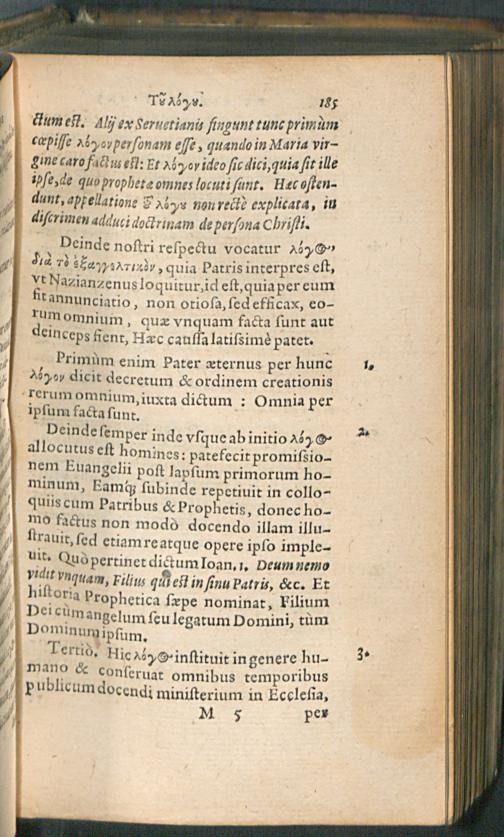 Τȣ͂ λόγȣ. 185
ctum est. Alij ex Seruetianis fingunt tunc primùm
cœpisse λόγον personam esse, quando in Maria vir-
gine caro factus est: Et λόγον ideo sic dici, quia sit ille
ipse, de quo prophetæ omnes locuti sunt. Hæc osten-
dunt, appellatione τȣ͂ λόγȣ non rectè explicata, in
discrimen adduci doctrinam de persona Christi.
Deinde nostri respectu vocatur λόγος,
διὰ τὸ ἐξαγγελτικὸν, quia Patris interpres est,
vt Nazianzenus loquitur, id est, quia per eum
fit annunciatio, non otiosa, sed efficax, eo-
rum omnium, quæ vnquam facta sunt aut
deinceps fient, Hæc caussa latissimè patet.
Primùm enim Pater æternus per hunc 1.
λόγον dicit decretum & ordinem creationis
rerum omnium, iuxta dictum : Omnia per
ipsum facta sunt.
Deinde semper inde vsque ab initio λόγος 2.
allocutus est homines: patefecit promissio-
nem Euangelii post lapsum primorum ho-
minum, Eamq́; subinde repetiuit in collo-
quiis cum Patribus & Prophetis, donec ho-
mo factus non modò docendo illam illu-
strauit, sed etiam re atque opere ipso imple-
uit. Quò pertinet dictum Ioan. 1. Deum nemo
vidit vnquam, Filius qui est in sinu Patris, &c. Et
historia Prophetica sæpe nominat, Filium
Dei cùm angelum seu legatum Domini, tùm
Dominum ipsum.
Tertiò. Hic λόγος instituit in genere hu- 3.
mano & conseruat omnibus temporibus
publicum docendi ministerium in Ecclesia,
M 5 per